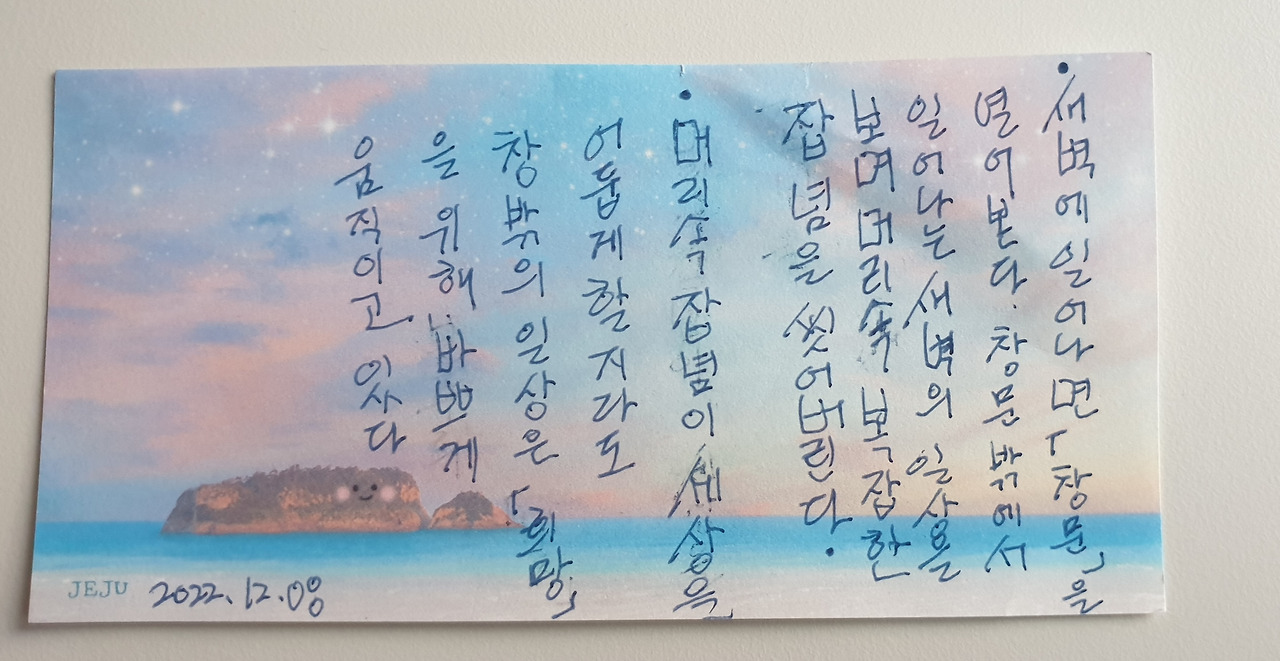 • 새벽에 일어나면 「창문」을
열어본다. 창문 밖에서
일어나는 새벽의 일상을
보며 머리속 복잡한
잡념을 씻어버린다.
• 머리속 잡념이 세상을
어둡게 할지라도
창밖의 일상은 「희망」
을 위해 바쁘게
움직이고 있다
JEJU 2022.12.08